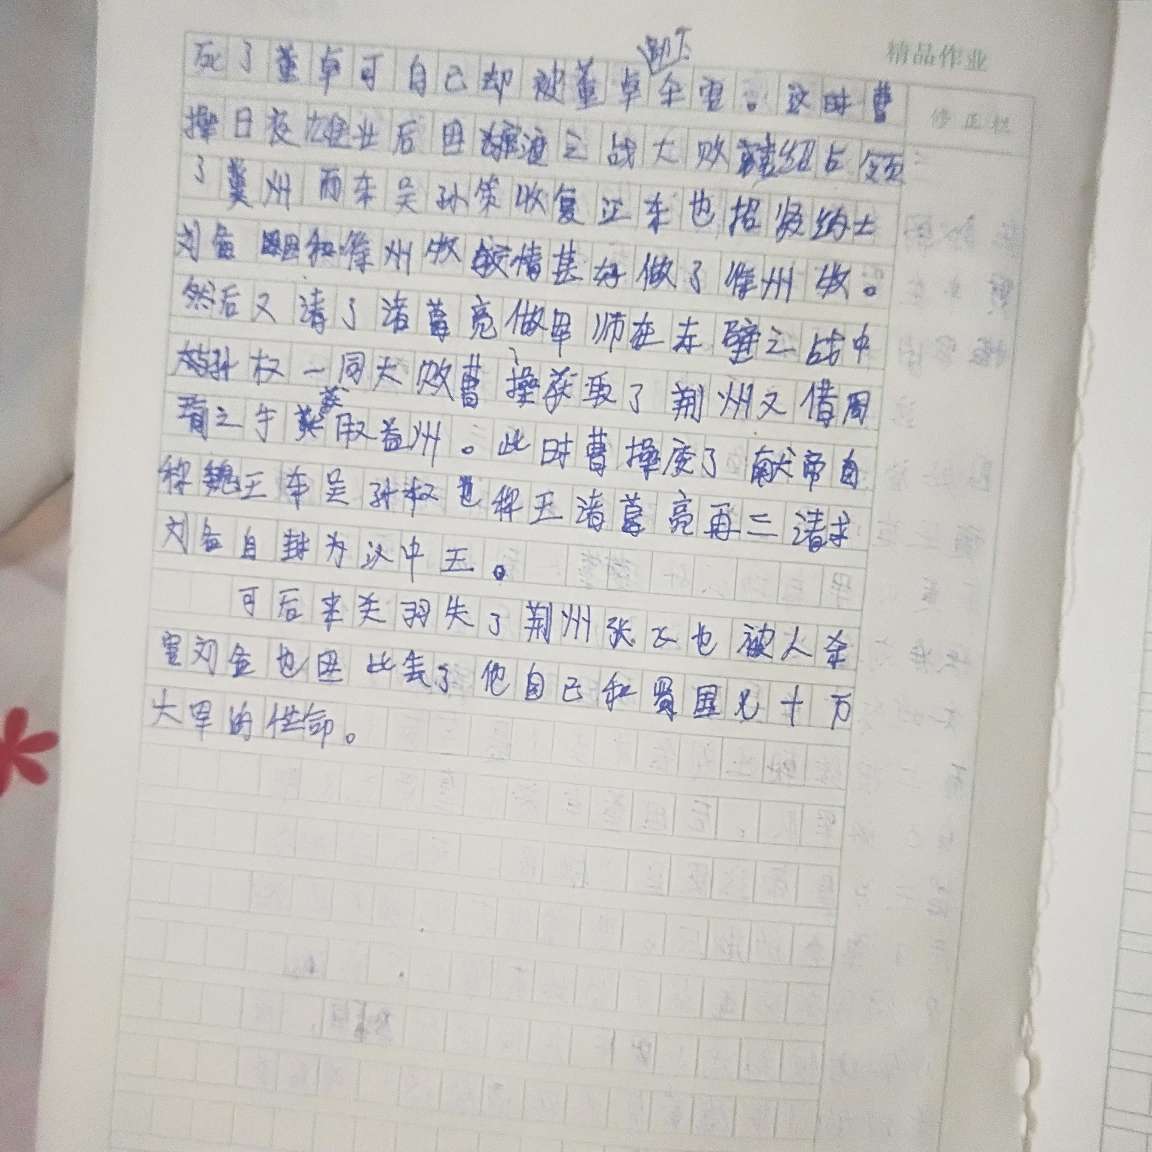 精品作业
修正栏
死了董卓可自己却被董卓部下杀害。这时曹
操日夜 业后因 渡之战大败袁绍占领
了冀州而东吴孙策收复江东也招贤纳士
刘备 和徐州牧交情甚好做了徐州牧。
然后又请了诸葛亮做军师在赤壁之战中
与孙权一同大败曹操获取了荆州又借周
瑜之手 取益州。此时曹操废了献帝自
称魏王东吴孙权也称王诸葛亮再三请求
刘备自封为汉中王。
可后来关羽失了荆州张飞也被人杀
害刘备也因此丢了他自己和蜀国几十万
大军的性命。